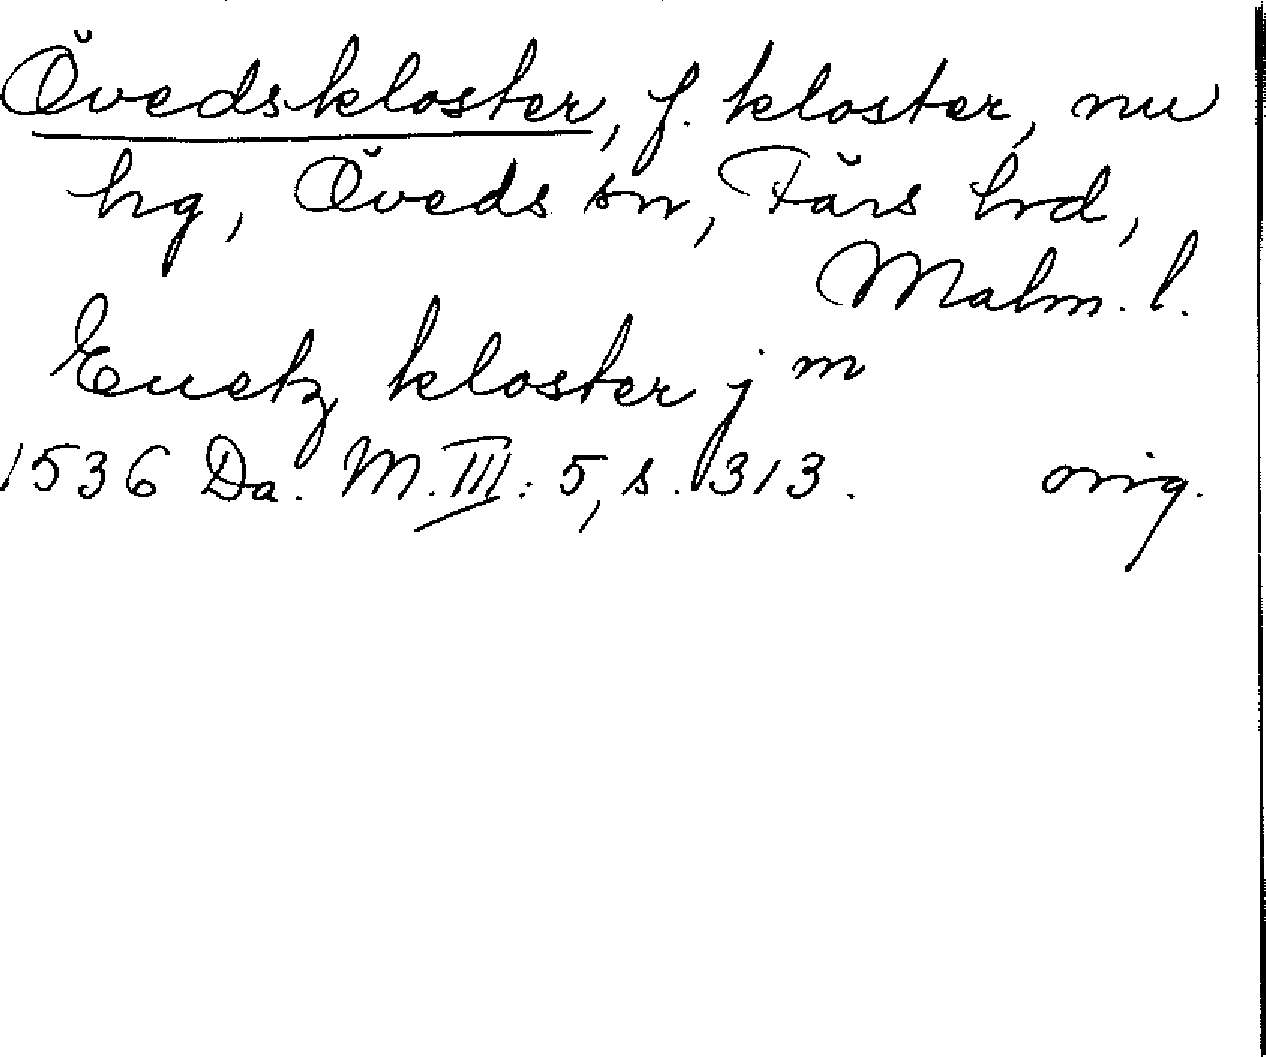 Övedskloster, f. kloster, nu
hg, Öveds sn, Färs hrd,
Malm. l.
Euetz kloster j m
1536 Da. M. III: 5, s. 313. orig.